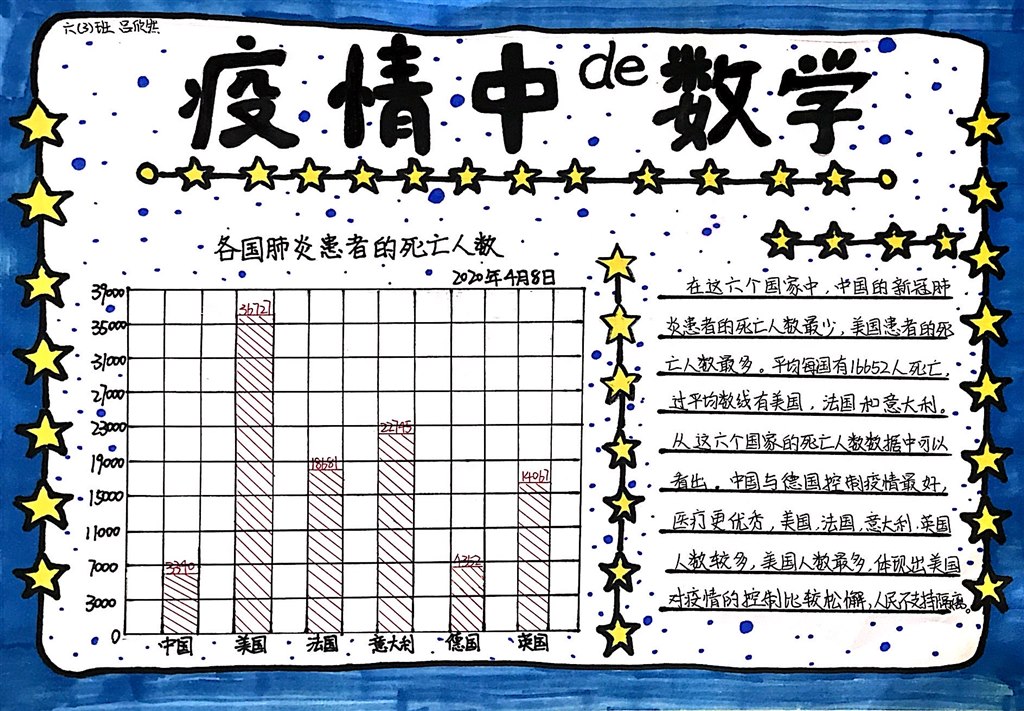 六(3)班 吕欣然
疫情中de数学
各国肺炎患者的死亡人数
2020年4月8日
39000
35000
31000
27000
23000
19000
15000
11000
7000
3000
0
3340
36727
18681
22745
4352
14067
中国 美国 法国 意大利 德国 英国
在这六个国家中，中国的新冠肺
炎患者的死亡人数最少，美国患者的死
亡人数最多。平均每国有16652人死亡，
过平均数线有美国，法国和意大利。
从这六个国家的死亡人数数据中可以
看出。中国与德国控制疫情最好，
医疗更优秀，美国、法国、意大利、英国
人数较多，美国人数最多，体现出美国
对疫情的控制比较松懈，人民不支持隔离。